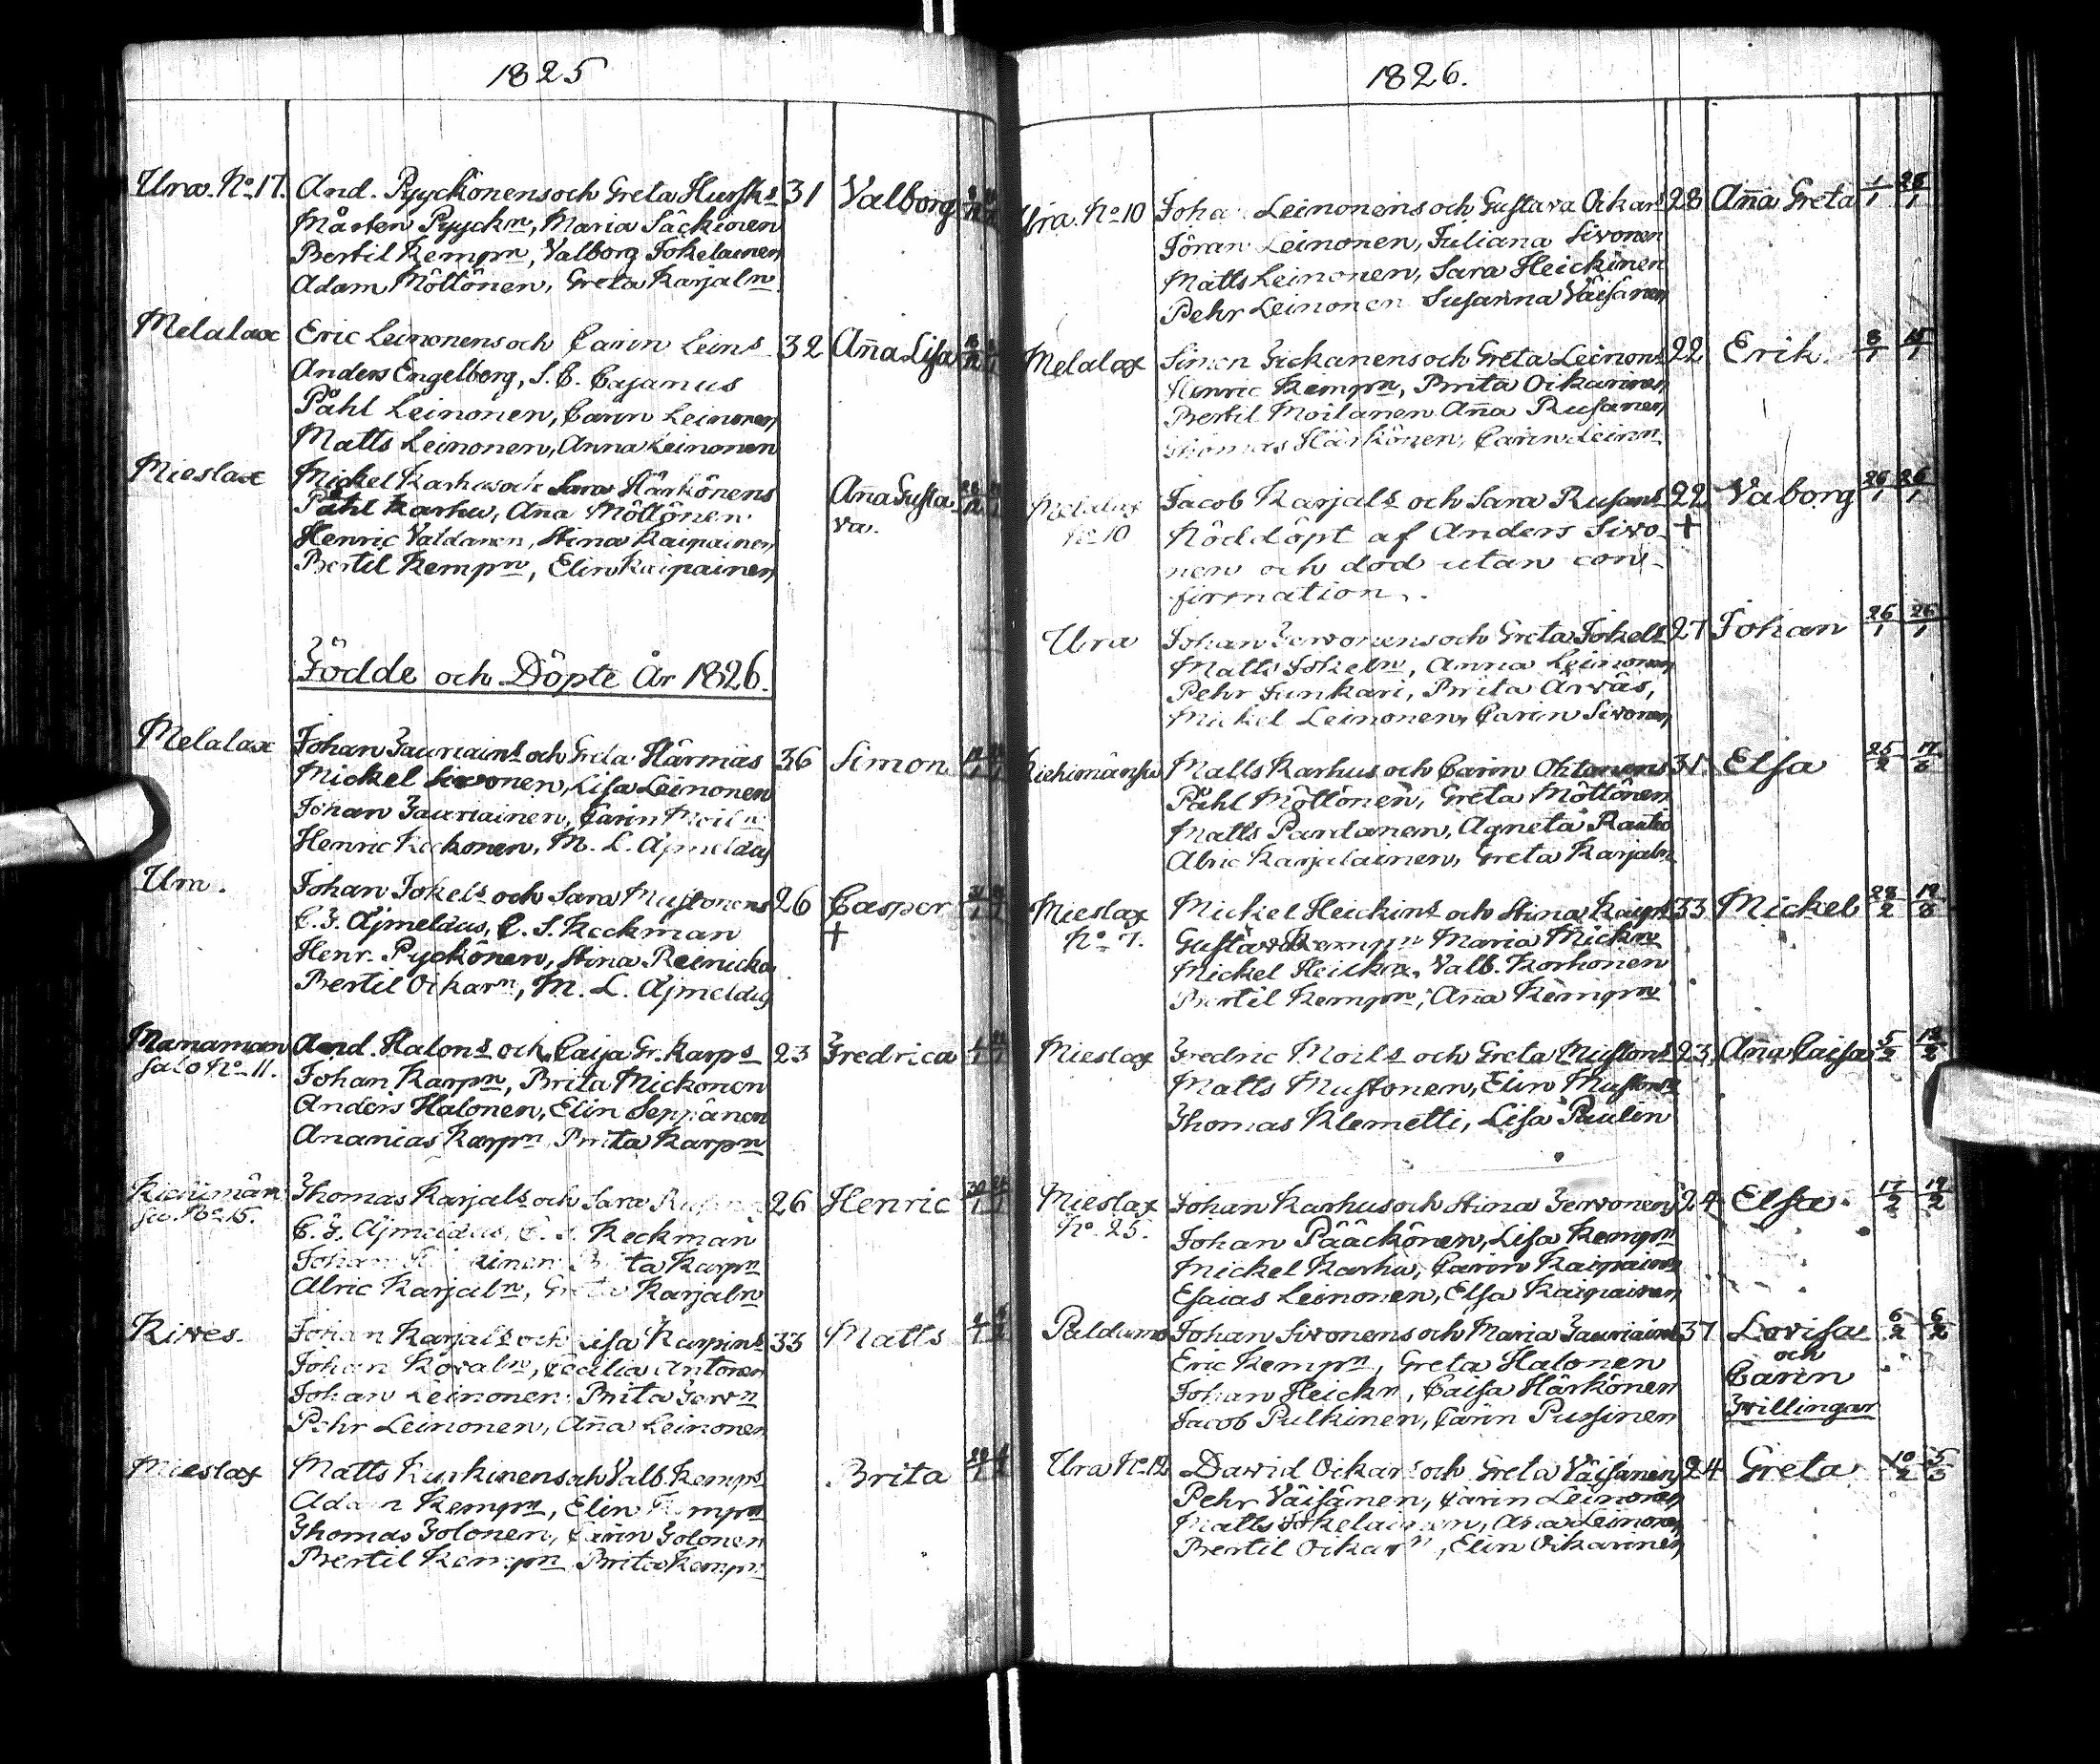 1825
Ura. No 17. And. Pyyckönens och Greta Hursks 31 Valborg
Mårten Pyyckn, Maria Säckinen
Bertil Kempn, Valborg Jokelainen
Adam Möttönen, Greta Karjaln
Melalax Eric Leinonens och Carin Leins 32 Aña Lisa
Anders Engelberg, S. C. Cajanus
Påhl Leinonen, Carin Leinonen
Matts Leinonen, Anna Leinonen
Mieslax Mickel Karhus och Sara Härkönens Aña Gusta
Påhl Karhu, Aña Möttönen va.
Henric Valdanen, Stina Kaipainen
Bertil Kempn, Elin Kaipainen
Födde och Döpte År 1826.
Melalax Johan Jauriains och Greta Härmäs 36 Simon
Mickel Sivonen, Lisa Leinonen
Johan Jauriainen, Carin
Henric Keckonen, M. L. Ajmeldag
Ura. Johan Jokels och Sara Mustonens 26 Casper
C. F. Ajmelaus, C. S. Keckman +
Henr. Pyckönen, Stina Reinicka
Bertil Oikarn, M. L. Ajmeldg
Manaman And. Halons och Caja Gr. Karps 23 Fredrica
salo No 11. Johan Karpn, Brita Mickonen
Anders Halonen, Elin Seppänen
Ananias Karpn Brita Karpn
Kiehimän Thomas Karjals och Sara 26 Henric
su. No 15. C. F. Ajmelaus, C. S. Keckman
Johan Brita Karpn
Alric Karjaln, Greta Karjaln
Kives. Johan Karjals och Lisa Karpins 33 Matts
Johan Kovaln, Cecilia Antonen
Johan Leinonen Brita Jervn
Pehr Leinonen, Aña Leinonen
Mieslax Matts Kurkinens och Valb. Kemps Brita
Adam Kempn, Elin Kempn
Thomas Tolonen, Carin Tolonen
Bertil Kempn Brita Kempn
1826.
Ura. No 10 Johan Leinonens och Gustava Oikars 28 Aña Greta 1/1 28/1
Jöran Leinonen, Juliana Sivonen
Matts Leinonen, Sara Heickinen
Pehr Leinonen Susanna Väisänen
Melalax Simon Kickanens och Greta Leinons 22 Erik. 8/1 15/1
Henric Kempn, Brita Oikarinen
Bertil Moilanen Aña Rusanen
Thomas Härkönen, Carin Leinn
Melalax Jacob Karjals och Sara Rusans 22 Vaborg 26/1 26/1
No 10 Nöddöpt af Anders Sivo- +
nen och död utan con-
firmation.
Ura Johan Jervonens och Greta Jokels 27 Johan 26/1 26/1
Matts Jokeln, Anna Leinonen
Pehr Junkari, Brita Arväs,
Mickel Leinonen, Carin Sivonen
Kiehimänsu Matts Karhus och Carin Ohtonens 31. Elsa 25/2
Påhl Möttönen, Greta Möttönen
Matts Pardanen, Agneta Rautio
Alric Karjalainen, Greta Karjaln
Mieslax Mickel Heickins och Stina Kaips 33 Mickel
No 7. Gustav Kempn Maria Mickn
Mickel Heickn, Valb. Korhonen
Bertil Kempn, Aña Kempn
Mieslax Fredric Moils och Greta Mustons 23. Aña Caisa 5/2 12/2
Matts Mustonen, Elin Mustonen
Thomas Klemetti, Lisa Paulin
Mieslax Johan Karhus och Stina Jervonens 24 Elsa 17/2 19/2
No 25. Johan Pääckönen, Lisa Kempn
Mickel Karhu, Carin Kaipainen
Esaias Leinonen, Elsa Kaipainen
Paldamo Johan Sivonens och Maria Jauriains 37 Lovisa 6/2 6/2
Eric Kempn, Greta Halonen och
Johan Heickn, Caisa Härkönen Carin
Jacob Pulkinen, Carin Pussinen Tvillingar
Ura No 12 David Oikars och Greta Väisänens 24 Greta 10/2 5/3
Pehr Väisänen, Carin Leinonen
Matts Jokelainen, Aña Leinonen
Bertil Oikarn, Elin Oikarinen